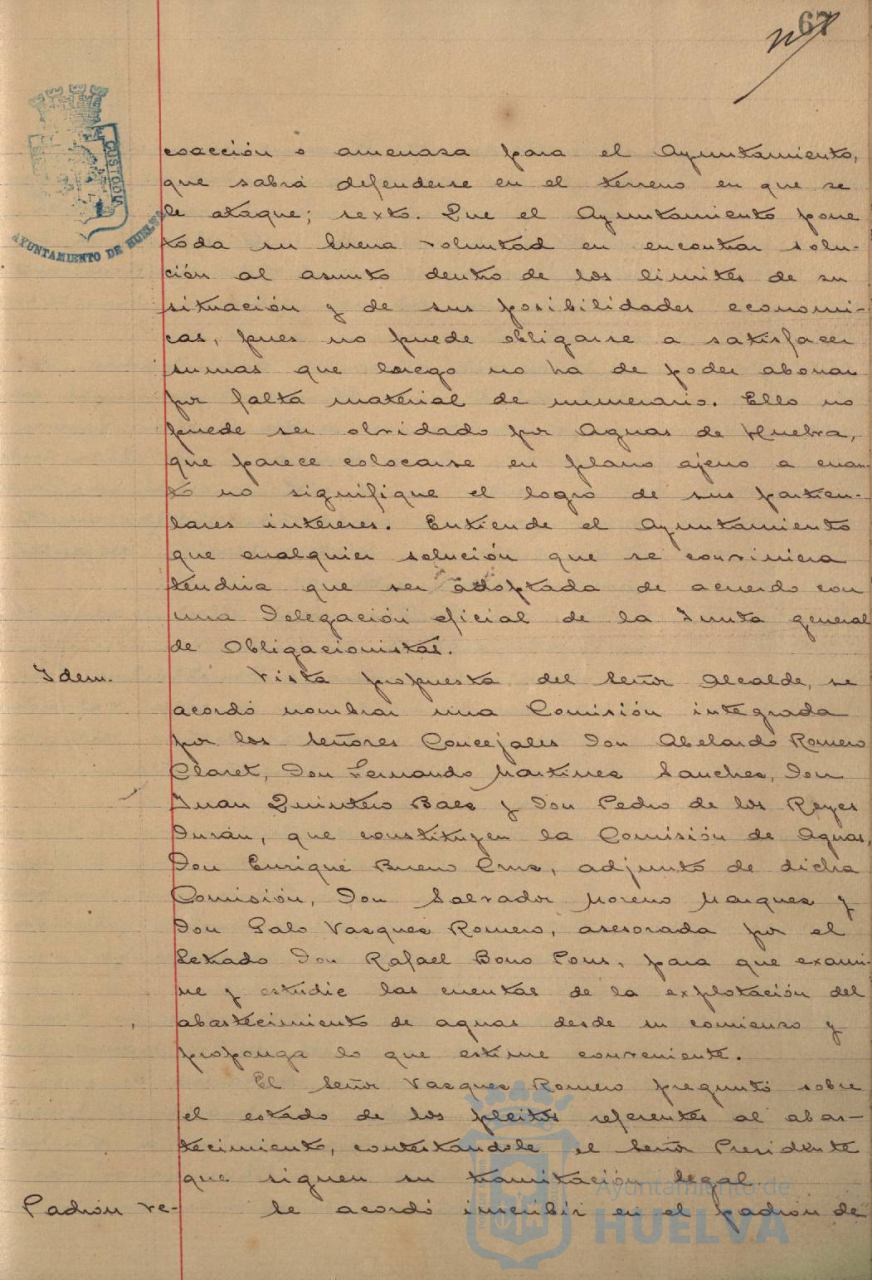 67
coacción o amenaza para el Ayuntamiento,
que sabrá defenderse en el terreno en que se
le ataque; sexto. Que el Ayuntamiento pone
toda su buena voluntad en encontrar solu-
ción al asunto dentro de los limites de su
situación y de sus posibilidades economi-
cas, pues no puede obligarse a satisfacer
sumas que luego no ha de poder abonar
por falta material de numerario. Ello no
puede ser olvidado por Aguas de Huelva,
que parece colocarse en plano ajeno a cuan-
to no signifique el logro de sus particu-
lares intereses. Entiende el Ayuntamiento
que cualquier solución que se conviniera
tendria que ser adoptada de acuerdo con
una Delegación oficial de la Junta general
de Obligacionistas.
Idem. Vista propuesta del Señor Alcalde, se
acordó nombrar una Comisión integrada
por los Señores Concejales Don Abelardo Romero
Claret, Don Fernando Martinez Sanchez, Don
Juan Quintero Baez y Don Pedro de los Reyes
Durán, que constituyen la Comisión de Aguas,
Don Enrique Bueno Cruz, adjunto de dicha
Comisión, Don Salvador Moreno Marquez y
Don Galo Vazquez Romero, asesorada por el
Letrado Don Rafael Bono Pons, para que exami-
ne y estudie las cuentas de la explotación del
abastecimiento de aguas desde su comienzo y
proponga lo que estime conveniente.
El Señor Vazquez Romero preguntó sobre
el estado de los pleitos referentes al abas-
tecimiento, contestandole el Señor Presidente
que siguen su tramitación legal.
Padrón ve- Se acordó inscribir en el padrón de
CUSTODIA
AYUNTAMIENTO DE HUELVA
Ayuntamiento de
HUELVA